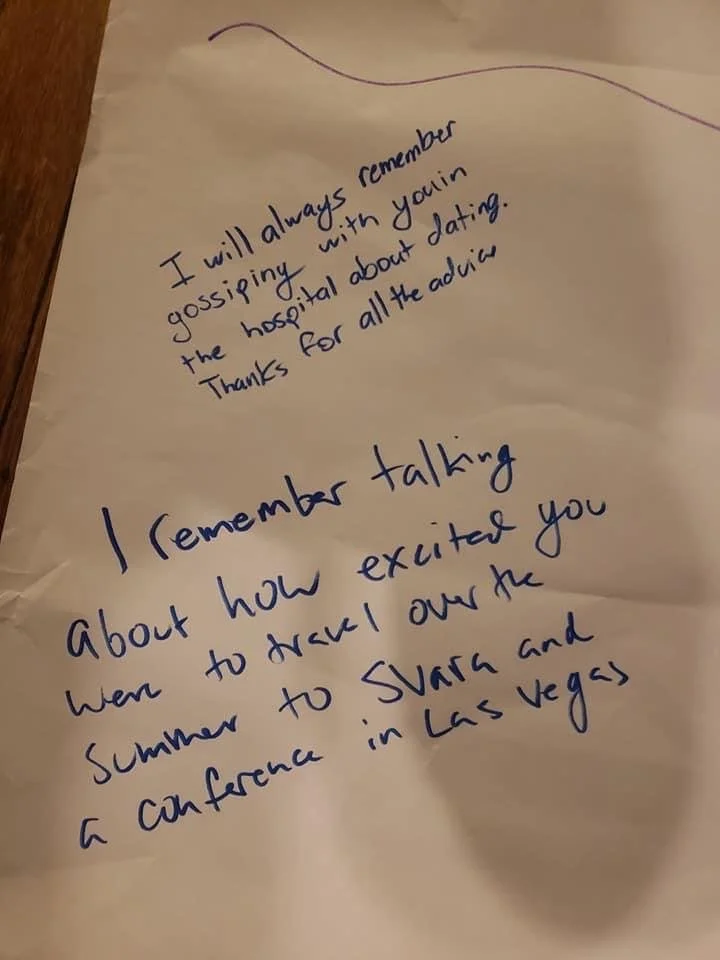 I will always remember
gossiping with you in
the hospital about dating.
Thanks for all the advice
I remember talking
about how excited you
were to travel over the
summer to SVARA and
a conference in Las Vegas